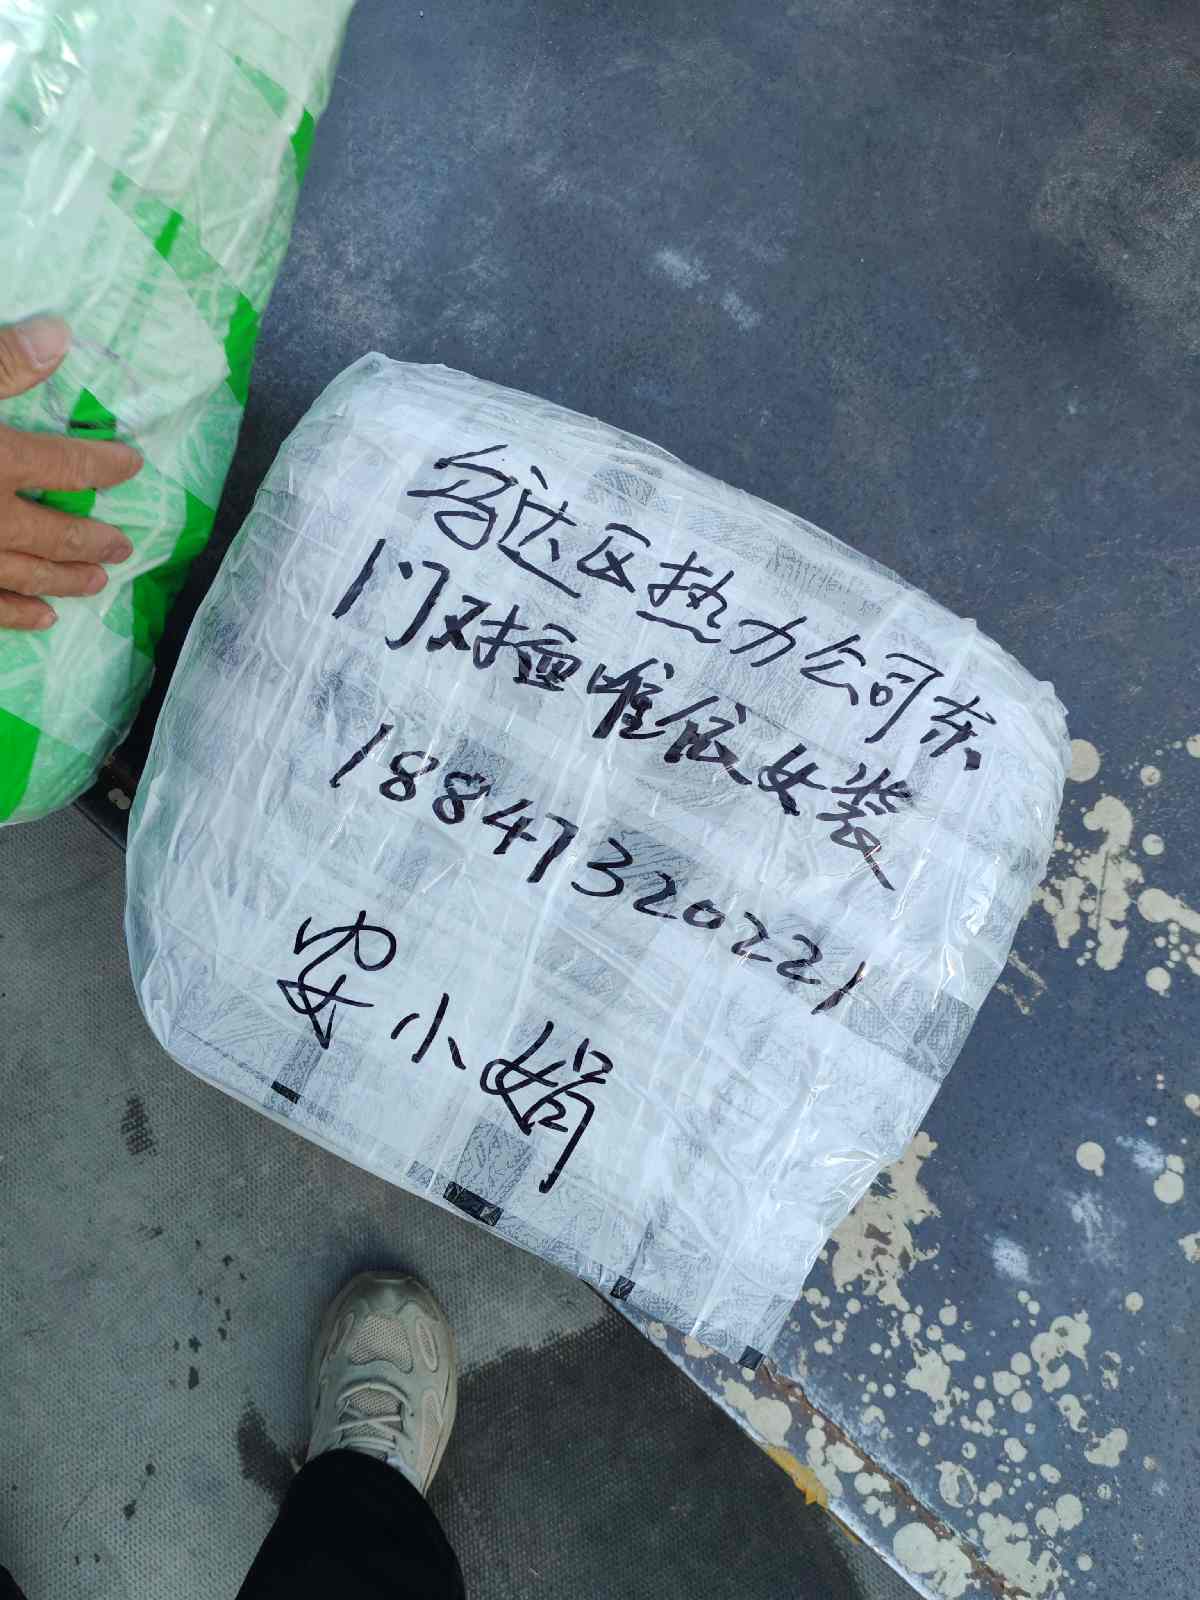 乌达区热力公司东
门对面唯依女装
18847320221
安小娟